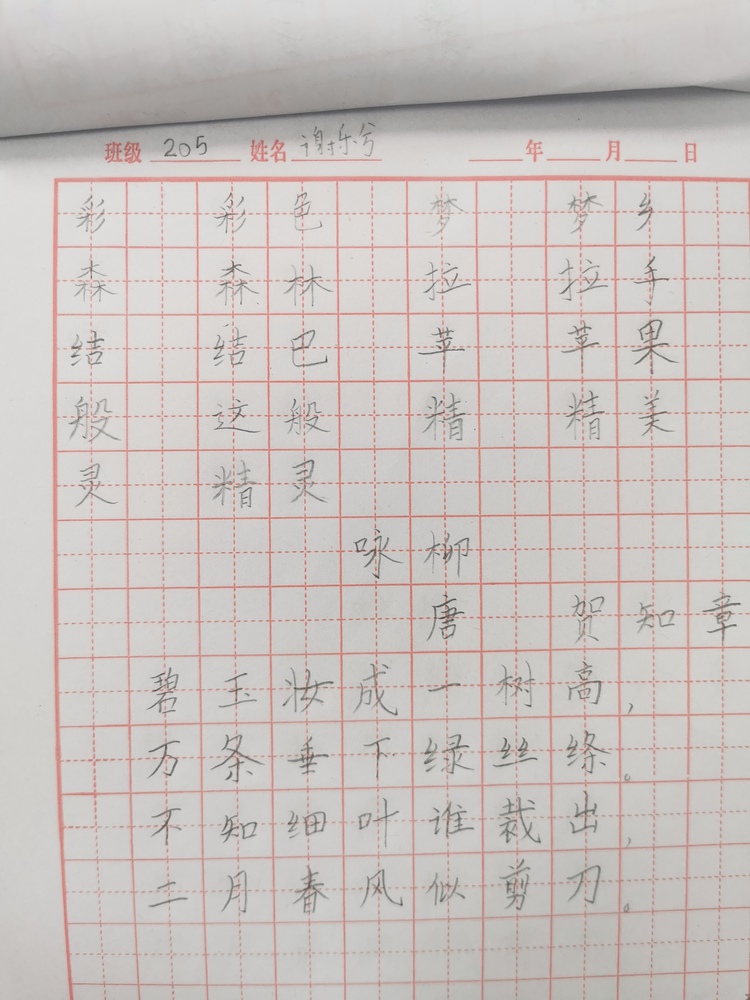 班级 205 姓名 谢乐兮 年 月 日
彩 彩色 梦 梦乡
森 森林 拉 拉手
结 结巴 苹 苹果
般 这般 精 精美
灵 精灵
咏柳
唐 贺知章
碧玉妆成一树高,
万条垂下绿丝绦。
不知细叶谁裁出,
二月春风似剪刀。